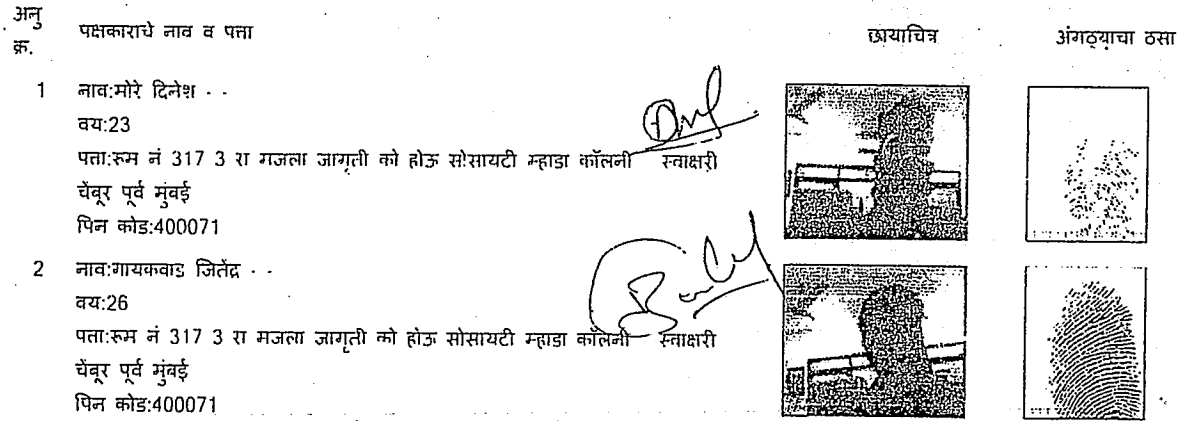 अनु क्र. पक्षकाराचे नाव व पत्ता छायाचित्र अंगठ्याचा ठसा
1 नाव:मोरे दिनेश - -
वय:23
पत्ता:रूम नं 317 3 रा मजला जागृती को होऊ सोसायटी म्हाडा कॉलनी स्वाक्षरी
चेंबूर पूर्व मुंबई
पिन कोड:400071
2 नाव:गायकवाड जितेंद्र - -
वय:26
पत्ता:रूम नं 317 3 रा मजला जागृती को होऊ सोसायटी म्हाडा कॉलनी स्वाक्षरी
चेंबूर पूर्व मुंबई
पिन कोड:400071